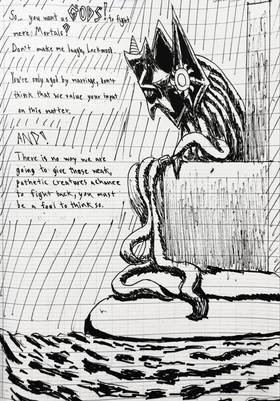 So... you want us GODS! to fight
mere Mortals?
Don't make me laugh, Lockmost.
You're only a god by marriage, don't
think that we value your input
on this matter.
AND?
There is no way we are
going to give those weak,
pathetic creatures a chance
to fight back, you must
be a fool to think so.